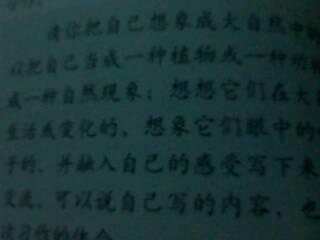 请你把自己想象成大自然中的
以把自己当成一种植物或一种动
或一种自然现象；想想它们在大
生活或变化的，想象它们眼中的
子的，并融入自己的感受写下来
交流，可以说自己写的内容，也
谈习作的体会